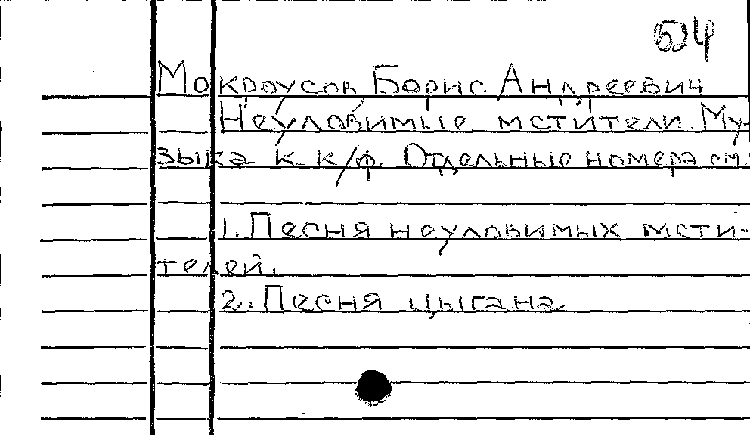 524
Мокроусов Борис Андреевич
Неуловимые мстители. Му-
зыка к к/ф. Отдельные номера см.
1. Песня неуловимых мсти-
телей.
2. Песня цыгана